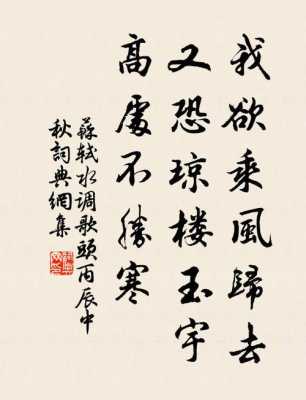 我欲乘風歸去
又恐琼楼玉宇
高處不勝寒
蘇軾水调歌頭丙辰中
秋詞典網集